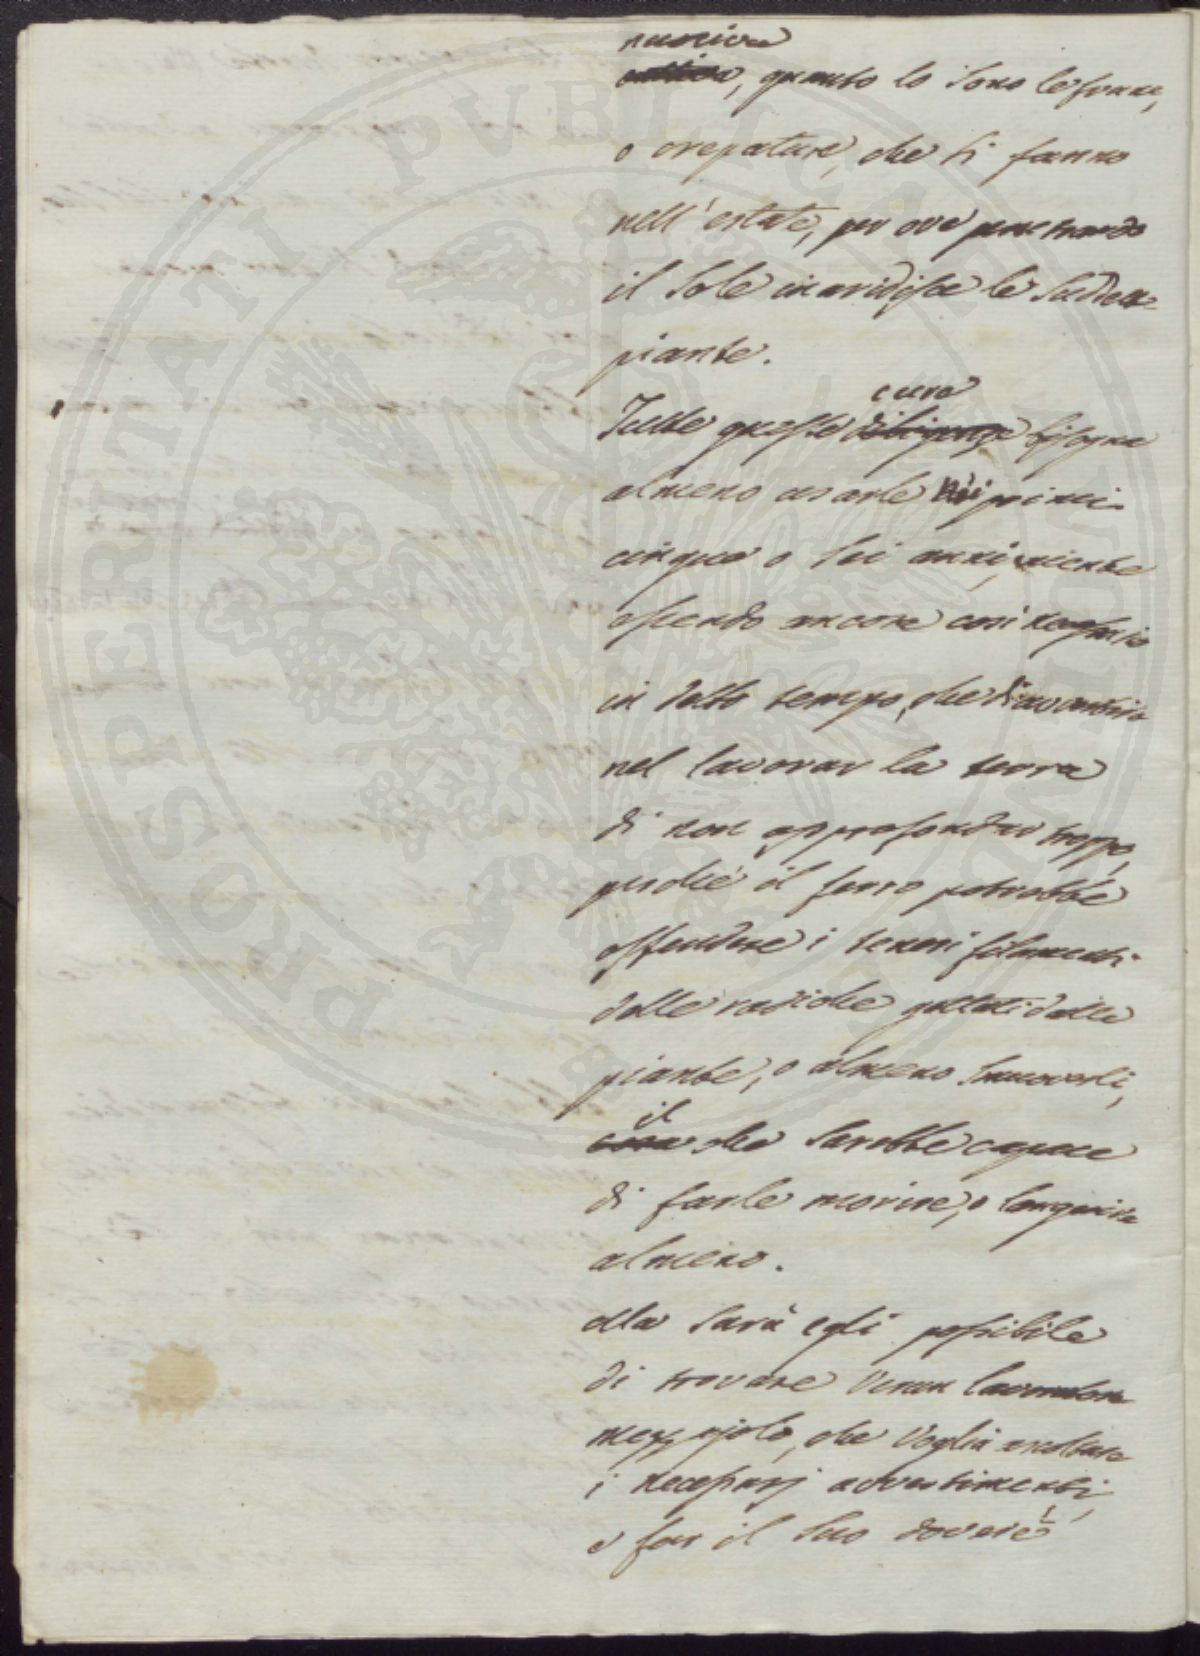 nociva
cattiva, quanto lo sono le
o crepature, che si fanno
nell' estate, per ove penetrando
il Sole inaridisce le sudette
piante.
cura
Tutte queste diligenze bisogna
almeno usarle nei primi
cinque o sei anni, niente
essendo ancora così necessario
in detto tempo, che di avvertire
nel lavorar la terra
di non approfondar troppo,
perchè il ferro potrebbe
offendere i teneri filamenti
delle radiche gettati dalle
piante, o almeno smuoverli,
il
cosa che sarebbe capace
di farle morire, o languire
almeno.
Ma sarà egli possibile
di trovare verun lavoratore
mezzajolo, che voglia ascoltare
i necessarj avvertimenti,
e far il suo dovere
PROSPERITATI PUBLICAE AUGENDAE